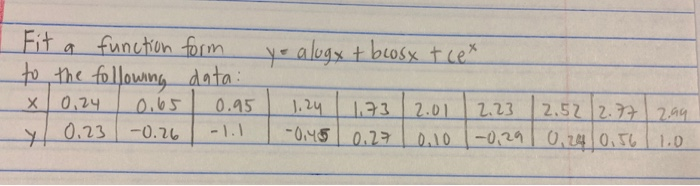 Fit a function form y = a log x + b cos x + c e^x
to the following data:
x | 0.24 | 0.65 | 0.95 | 1.24 | 1.73 | 2.01 | 2.23 | 2.52 | 2.77 | 2.99
y | 0.23 | -0.26 | -1.1 | -0.45 | 0.27 | 0.10 | -0.29 | 0.24 | 0.56 | 1.0